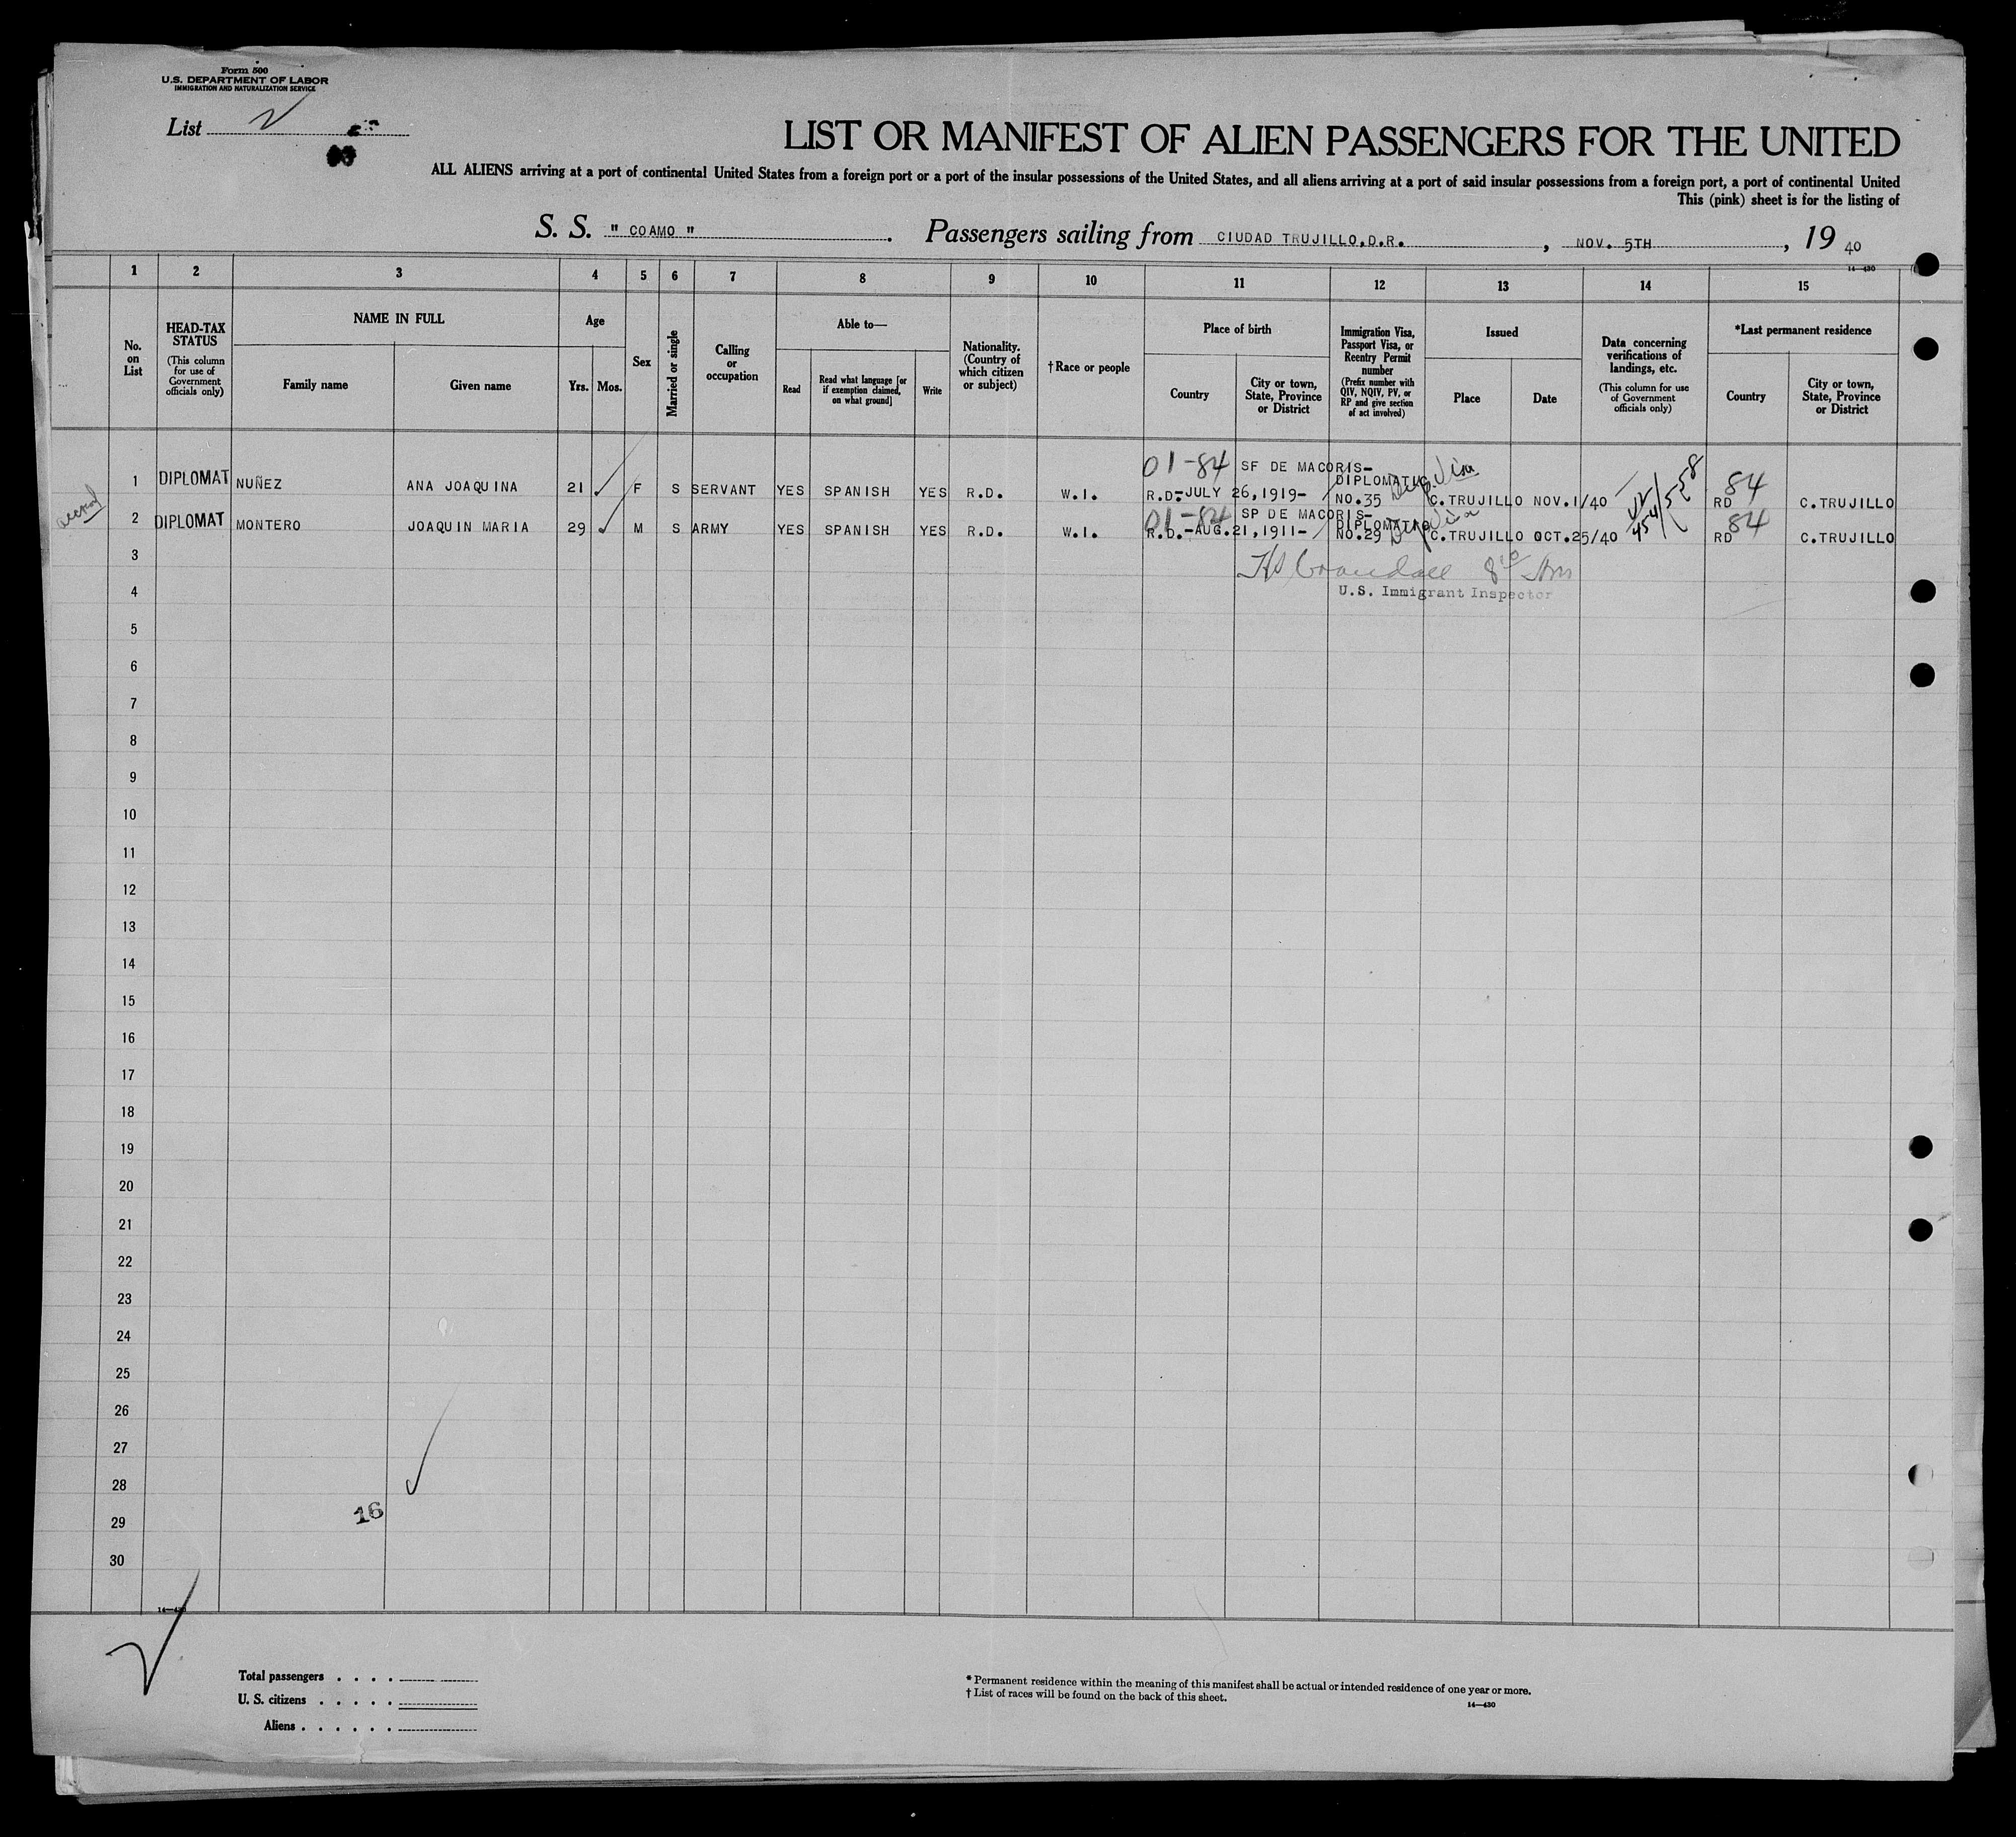 Form 500
U.S. DEPARTMENT OF LABOR
IMMIGRATION AND NATURALIZATION SERVICE
List
LIST OR MANIFEST OF ALIEN PASSENGERS FOR THE UNITED
ALL ALIENS arriving at a port of continental United States from a foreign port or a port of the insular possessions of the United States, and all aliens arriving at a port of said insular possessions from a foreign port, a port of continental United
This (pink) sheet is for the listing of
S. S. " COAMO ". Passengers sailing from CIUDAD TRUJILLO,D.R. , NOV. 5TH , 19 40
14—430
1 2 3 4 5 6 7 8 9 10 11 12 13 14 15
No. on List
HEAD-TAX STATUS
(This column for use of Government officials only)
NAME IN FULL
Family name
Given name
Age
Yrs. Mos.
Sex
Married or single
Calling or occupation
Able to—
Read
Read what language [or if exemption claimed, on what ground]
Write
Nationality. (Country of which citizen or subject)
† Race or people
Place of birth
Country
City or town, State, Province or District
Immigration Visa, Passport Visa, or Reentry Permit number
(Prefix number with QIV, NQIV, PV, or RP and give section of act involved)
Issued
Place
Date
Data concerning verifications of landings, etc.
(This column for use of Government officials only)
*Last permanent residence
Country
City or town, State, Province or District
01-84 SF DE MACORIS-
DIPLOMATIC Dip. Visa
1 DIPLOMAT NUÑEZ ANA JOAQUINA 21 F S SERVANT YES SPANISH YES R.D. W.I. R.D.-JULY 26,1919- NO.35 C.TRUJILLO NOV.1/40 RD 84 C.TRUJILLO
01-84 SP DE MACORIS-
DIPLOMATIC Dip Visa
2 DIPLOMAT MONTERO JOAQUIN MARIA 29 M S ARMY YES SPANISH YES R.D. W.I. R.D.-AUG.21,1911- NO.29 C.TRUJILLO OCT.25/40 RD 84 C.TRUJILLO
3
4 U.S. Immigrant Inspector
5
6
7
8
9
10
11
12
13
14
15
16
17
18
19
20
21
22
23
24
25
26
27
28
16
29
30
14—430
Total passengers . . . .
U. S. citizens . . . . .
Aliens . . . . . .
* Permanent residence within the meaning of this manifest shall be actual or intended residence of one year or more.
† List of races will be found on the back of this sheet.
14—430